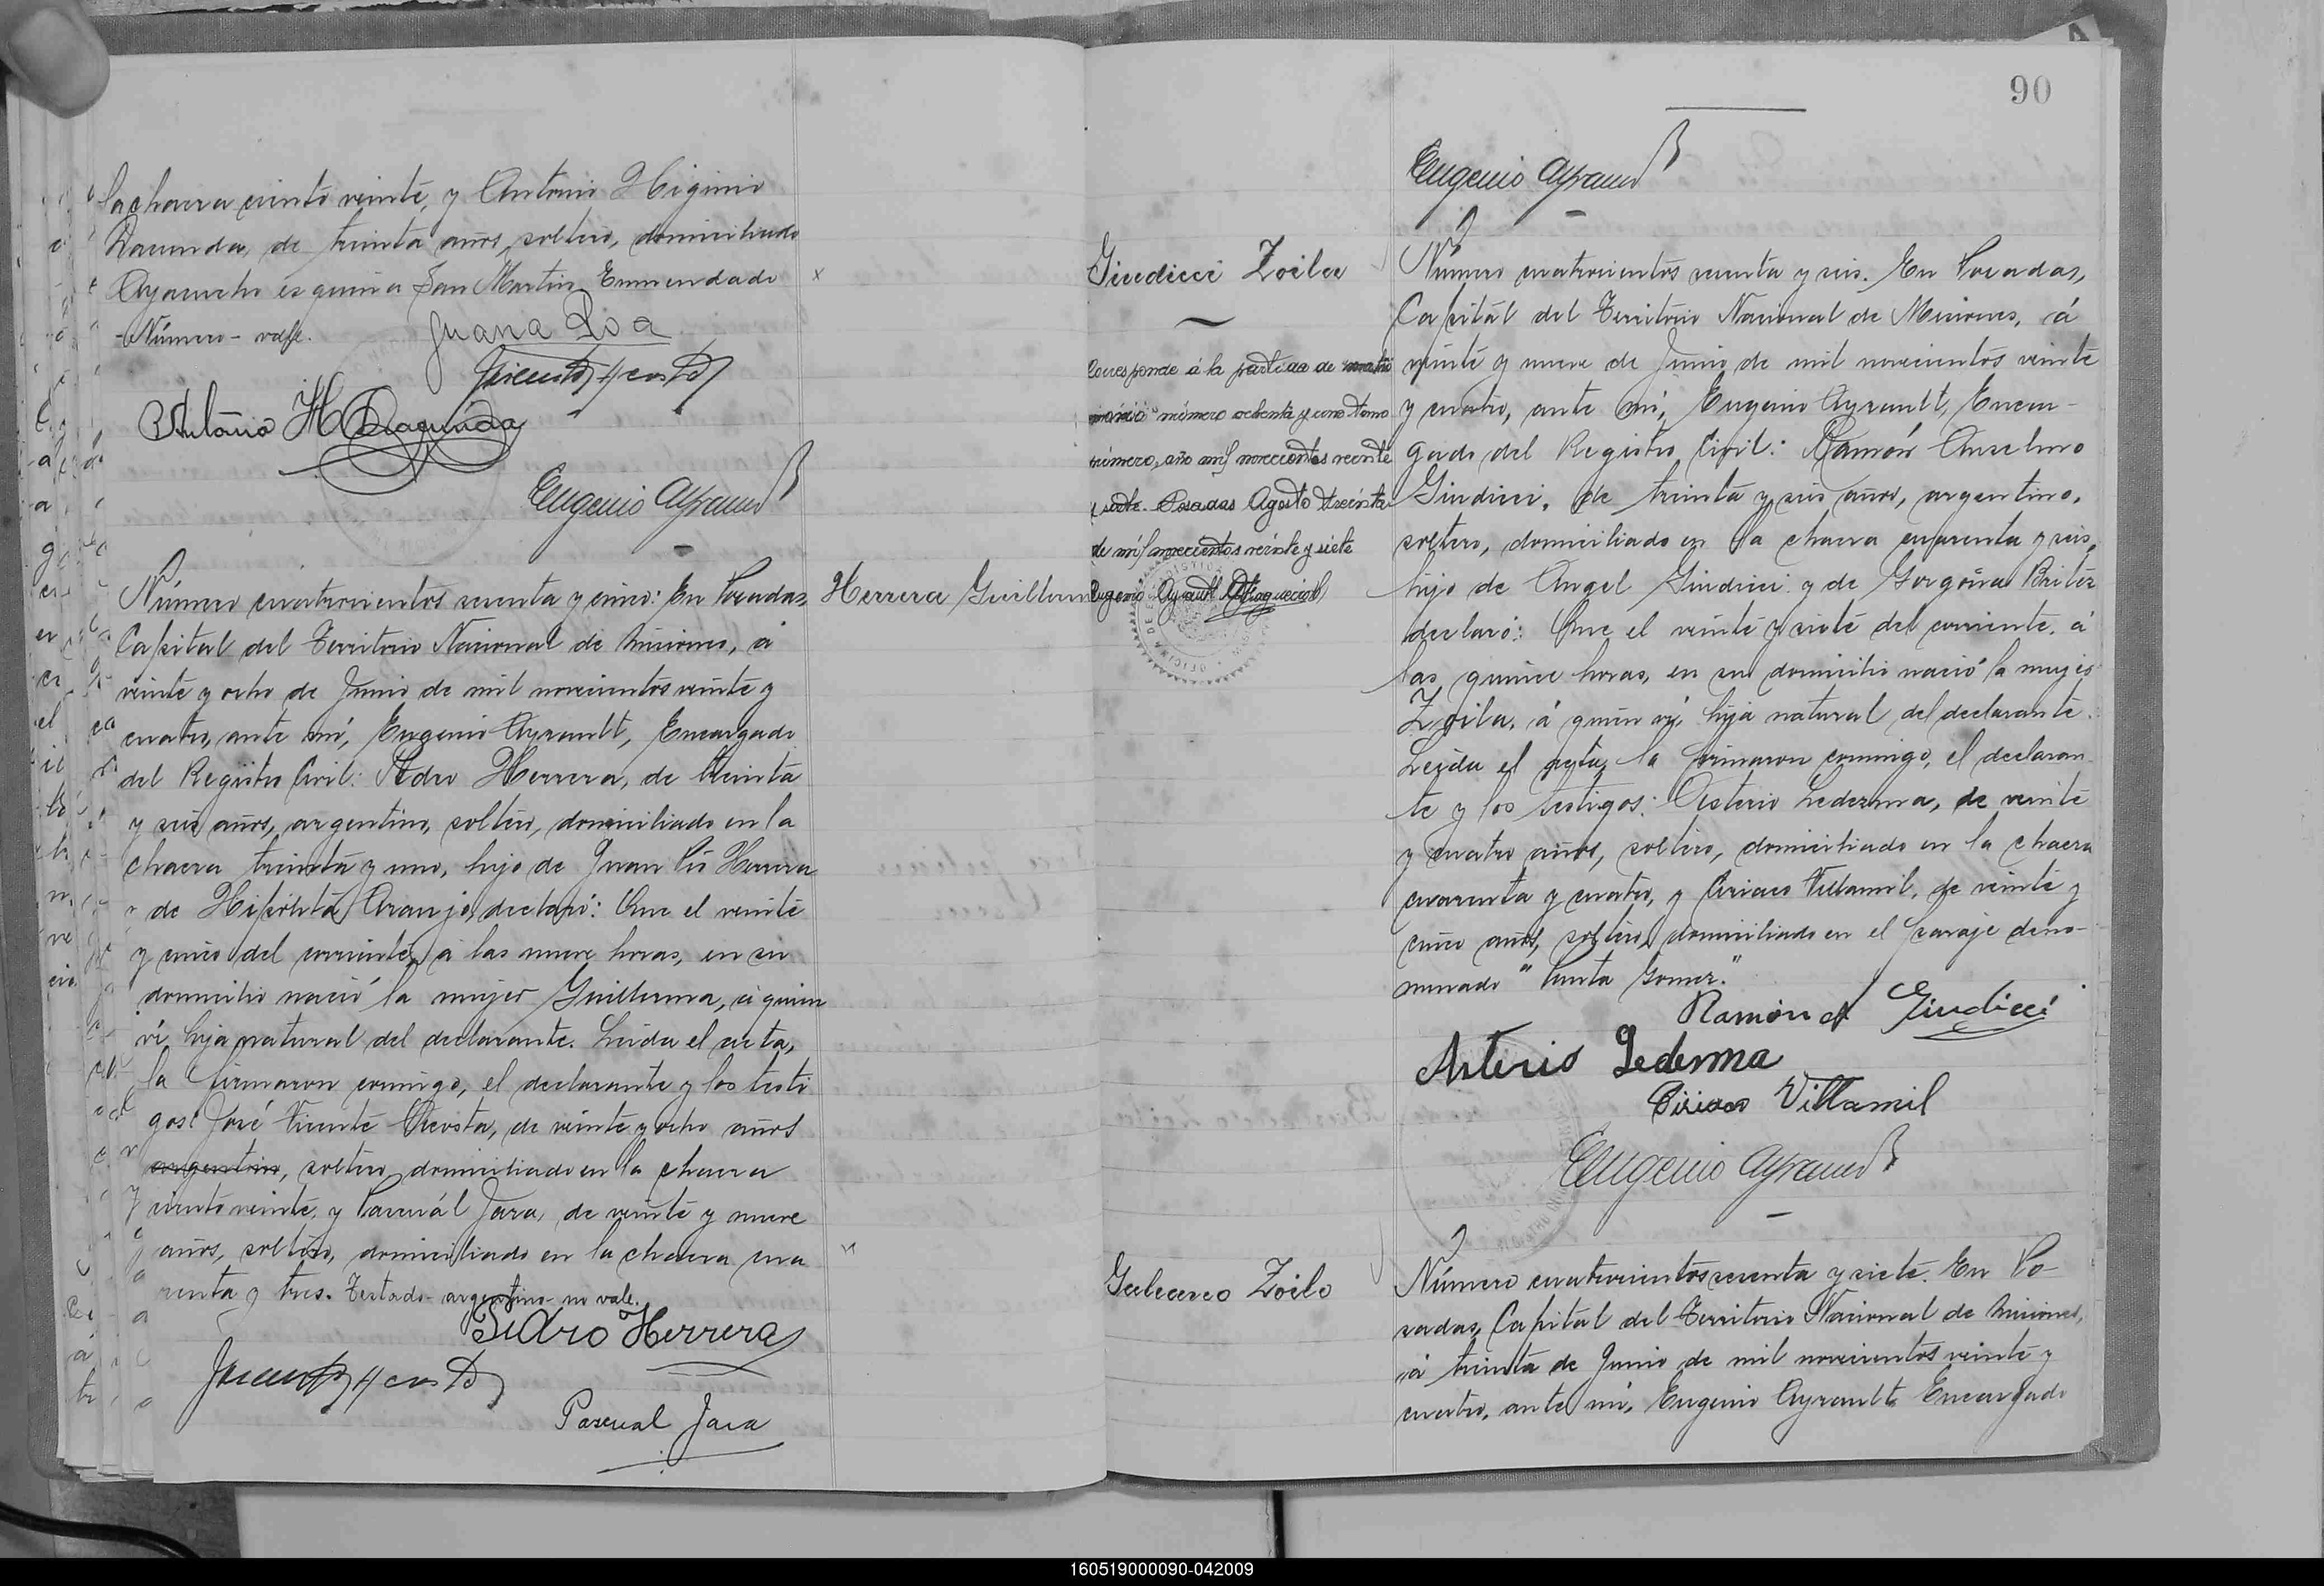 la chacra ciento veinte, y Antonio Higinio
de treinta años, soltero, domiciliado
Ayacucho esquina San Martin. Enmendado
-Número- vale.
Juana Roa
Antonio H
Eugenio Ayrault
Herrera Guillerma
Número cuatrocientos sesenta y cinco: En Posadas,
Capital del Territorio Nacional de Misiones, á
veinte y ocho de Junio de mil novecientos veinte y
cuatro, ante mí, Eugenio Ayrault, Encargado
del Registro Civil: Pedro Herrera, de treinta
y seis años, argentino, soltero, domiciliado en la
chacra treinta y uno, hijo de Juan Pío Herrera
y de Hipólita Araujo, declaró: Que el veinte
y cinco del corriente, á las nueve horas, en su
domicilio nació la mujer Guillerma, á quien
ví, hija natural del declarante. Leida el acta,
la firmaron conmigo, el declarante y los testi
gos: José Vicente Acosta, de veinte y ocho años
argentino, soltero, domiciliado en la chacra
ciento veinte, y Pascuál Jara, de veinte y nueve
años, soltero, domiciliado en la chacra cua
renta y tres. Testado-argentino-no vale.
Pedro Herrera
Pascual Jara
90
Eugenio Ayrault
Giudicci Zoila
Corresponde á la partida de
número ochenta y uno tomo
primero, año mil novecientos veinte
y siete. Posadas Agosto treinta
de mil novecientos veinte y siete
Eugenio Ayrault
Número cuatrocientos sesenta y seis. En Posadas,
Capitál del Territorio Nacional de Misiones, á
veinte y nueve de Junio de mil novecientos veinte
y cuatro, ante mí, Eugenio Ayrault, Encar-
gado del Registro Civil: Ramón Anselmo
Giudicci, de treinta y seis años, argentino,
soltero, domiciliado en la chacra cuarenta y seis,
hijo de Angel Giudicci y de Gorgonia Britez
declaró: Que el veinte y siete del corriente, á
las quince horas, en su domicilio nació la mujer
Zoila, á quien ví, hija natural del declarante.
Leida el acta, la firmaron conmigo, el declaran-
te y los testigos: Asterio Ledezma, de veinte
y cuatro años, soltero, domiciliado en la chacra
cuarenta y cuatro, y Ciriaco Villamil, de veinte y
cinco años, soltero, domiciliado en el paraje deno-
minado "Punta Gomez."
Ramón A Giudicci
Asterio Ledesma
Ciriaco Villamil
Eugenio Ayrault
Galeano Zoilo
Número cuatrocientos sesenta y siete. En Po-
sadas, Capital del Territorio Nacional de Misiones,
á treinta de Junio de mil novecientos veinte y
cuatro, ante mí, Eugenio Ayrault Encargado
160519000090-042009